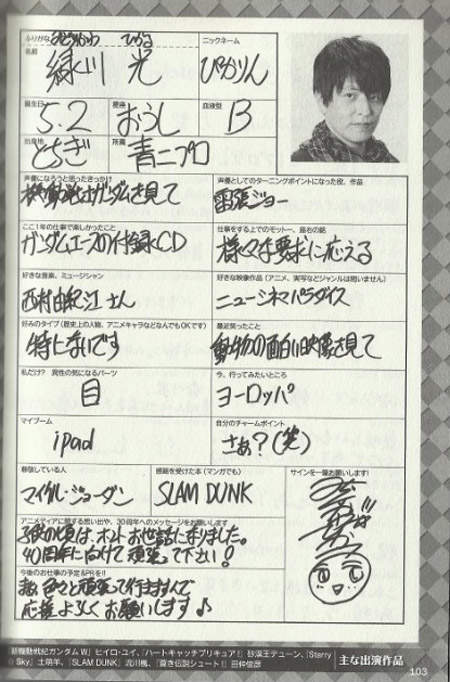 ふりがな みどりかわ ひかる
名前 緑川 光
ニックネーム
ぴかりん
誕生日 5.2
星座 おうし
血液型 B
出身地 とちぎ
所属 青二プロ
声優になろうと思ったきっかけ
機動戦士ガンダムを見て
声優としてのターニングポイントになった役、作品
雷張ジョー
ここ1年の仕事で楽しかったこと
ガンダムエースの付録CD
仕事をする上でのモットー、座右の銘
様々な要求に応える
好きな音楽、ミュージシャン
西村由紀江さん
好きな映像作品(アニメ、実写などジャンルは問いません)
ニューシネマパラダイス
好みのタイプ(歴史上の人物、アニメキャラなどなんでもOKです)
特にないです
最近笑ったこと
動物の面白い映像を見て
私だけ? 異性の気になるパーツ
目
今、行ってみたいところ
ヨーロッパ
マイブーム
ipad
自分のチャームポイント
さぁ?(笑)
尊敬している人
マイケル・ジョーダン
感銘を受けた本(マンガでも)
SLAM DUNK
サインを一筆お願いします!
アニメディアに関する思い出や、30周年へのメッセージをお願いします
子供の頃は、ホントお世話になりました。
40周年に向けて頑張って下さい!
今後のお仕事の予定&PRを!!
色々と頑張って行きますんで
応援よろしくお願いします♪
「新機動戦記ガンダムW」ヒイロ・ユイ、「ハートキャッチプリキュア!」砂漠王デューン、「Starry
☆Sky」土萌羊、「SLAM DUNK」流川楓、「蒼き伝説シュート!」田仲俊彦
主な出演作品
103